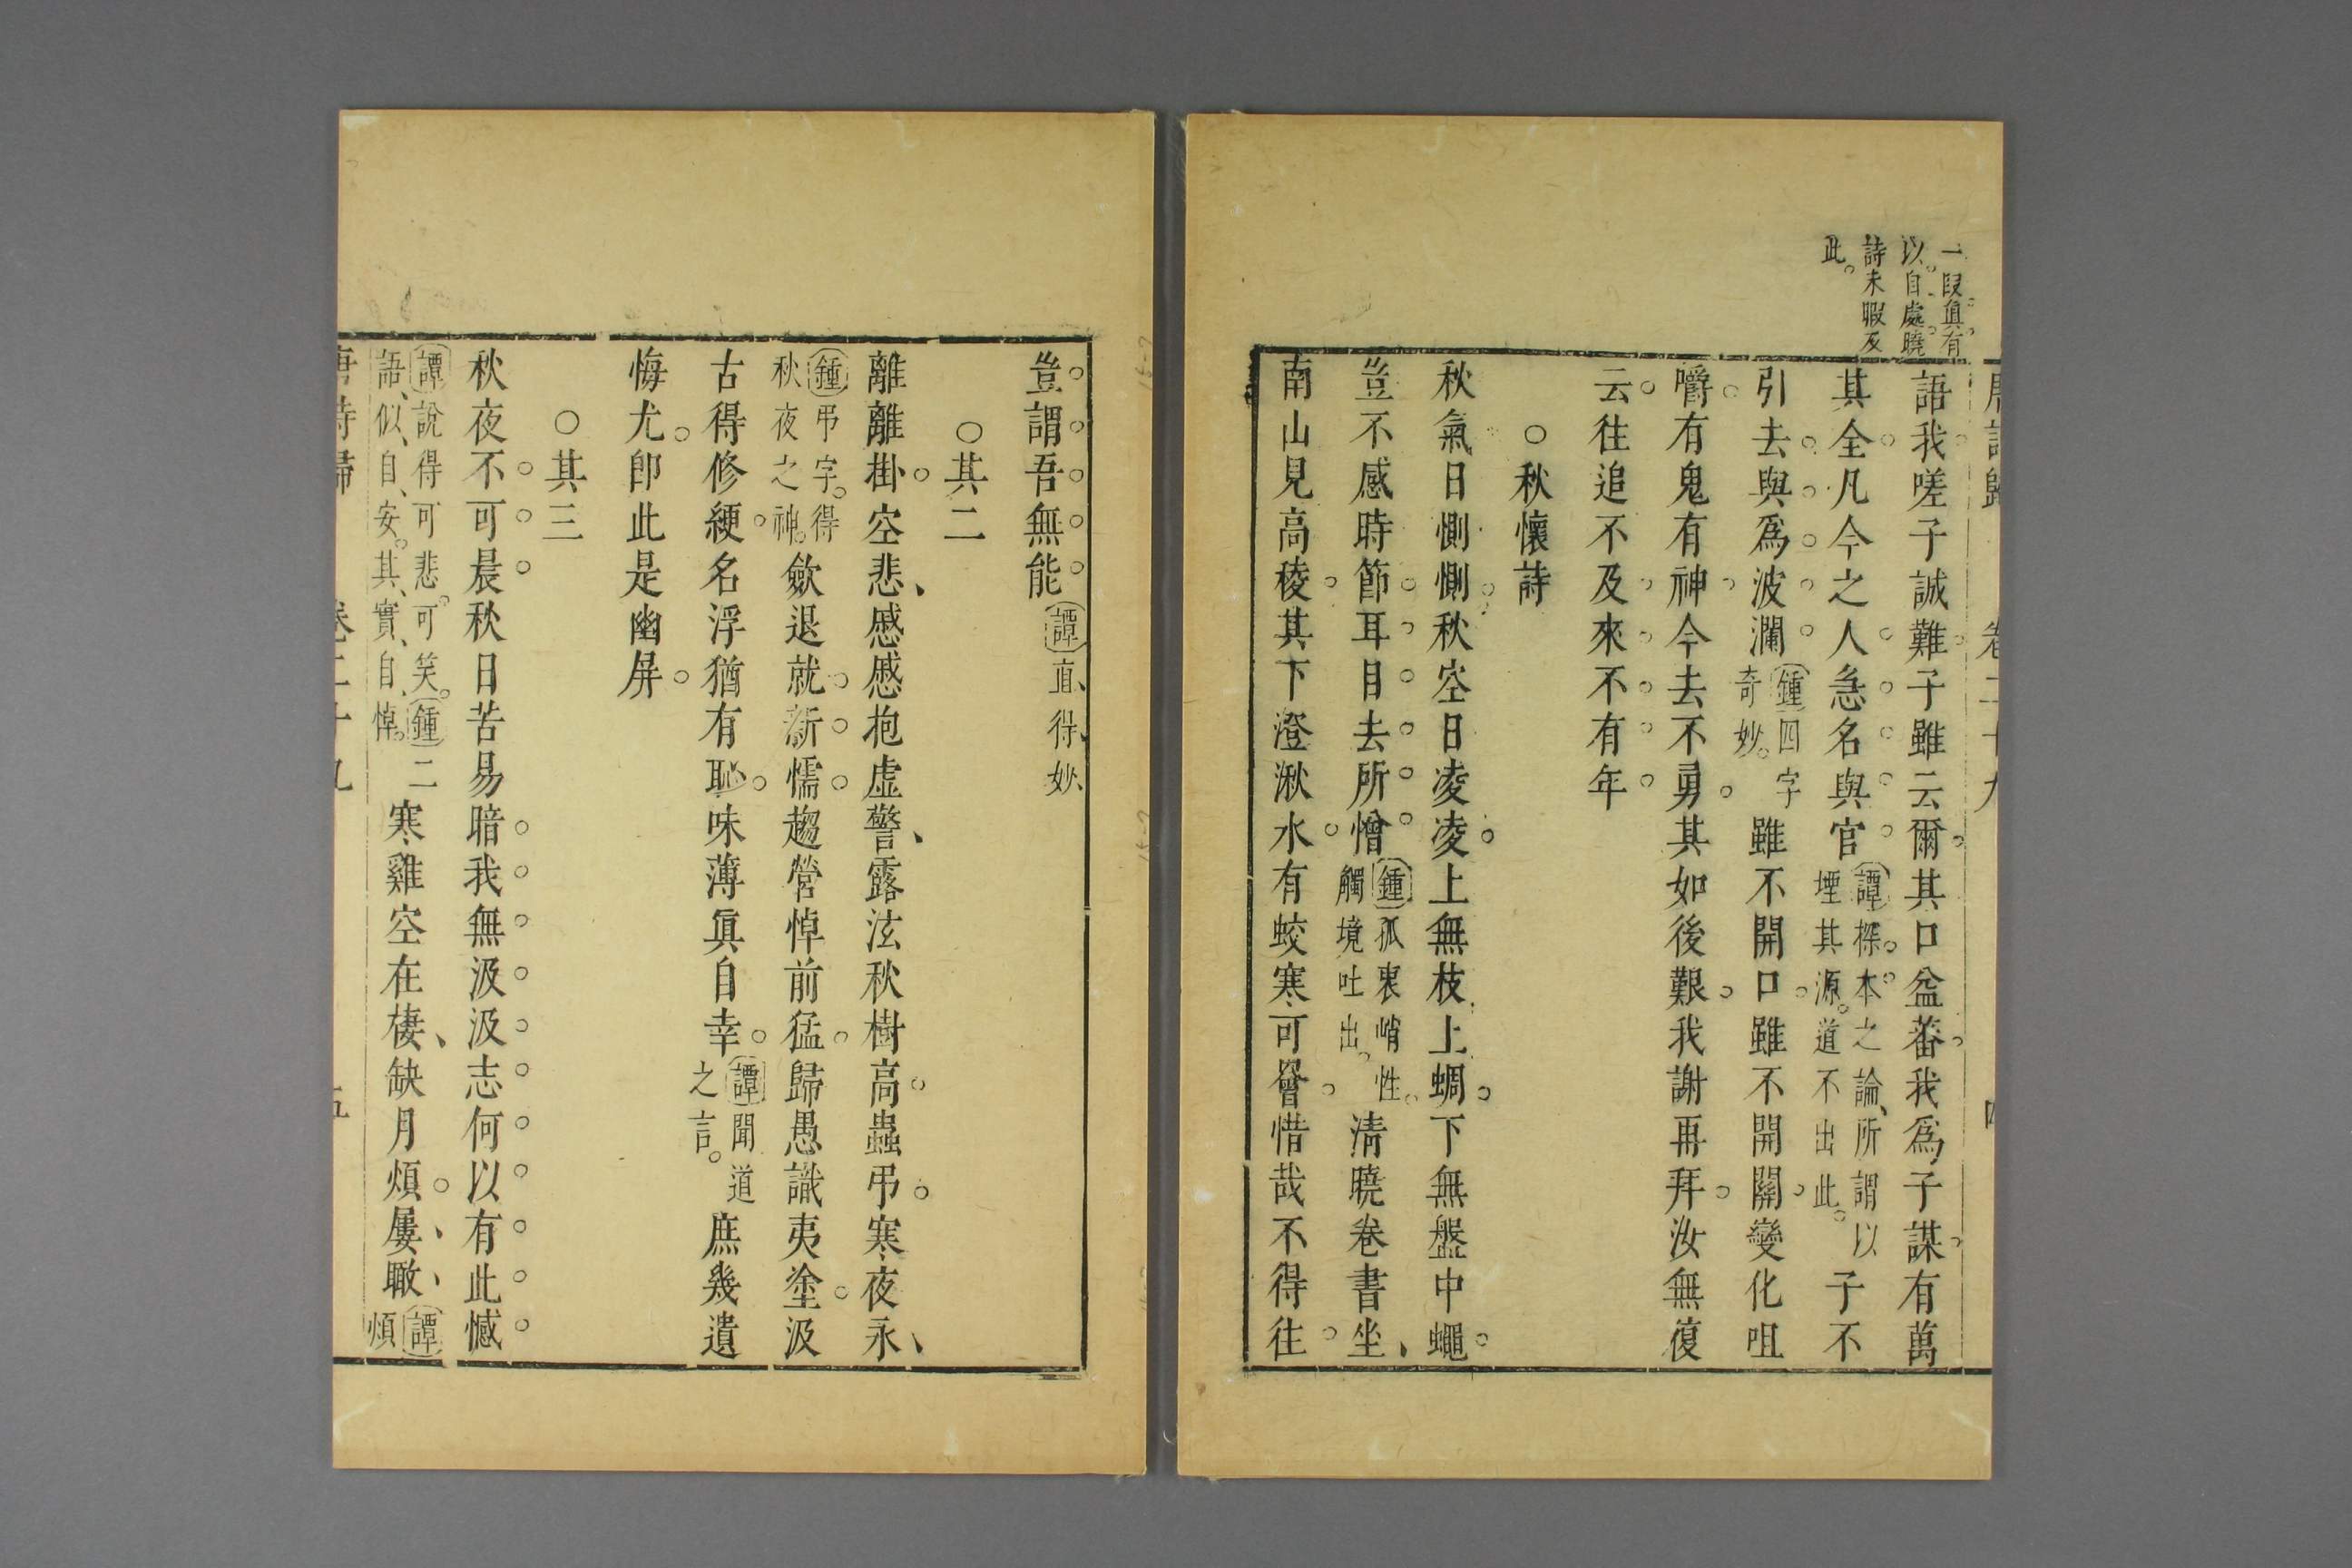 一段眞有
以自處曉
詩未暇及
此
唐詩歸 卷二十九 四
語我嗟子誠難子雖云爾其口益蕃我爲子謀有萬
其全凡今之人急名與官譚探本之論所謂以
堙其源道不出此子不
引去與爲波瀾鍾四字
奇妙雖不開口雖不開關變化咀
嚼有鬼有神今去不勇其如後艱我謝再拜汝無復
云往追不及來不有年
○秋懷詩
秋氣日惻惻秋空日凌凌上無枝上蜩下無盤中蠅
豈不感時節耳目去所憎鍾孤衷峭性
觸境吐出淸曉卷書坐
南山見高稜其下澄湫水有蛟寒可罾惜哉不得往
豈謂吾無能譚直得妙
○其二
離離掛空悲慼慼抱虛警露泫秋樹高蟲弔寒夜永
鍾弔字得
秋夜之神歛退就新懦趨營悼前猛歸愚識夷塗汲
古得修綆名浮猶有恥味薄眞自幸譚聞道
之言庶幾遺
悔尤卽此是幽屏
○其三
秋夜不可晨秋日苦易暗我無汲汲志何以有此憾
譚說得可悲可笑鍾二
語似自安其實自悼寒雞空在棲缺月煩屢瞰譚
煩
唐詩歸 卷二十九 五